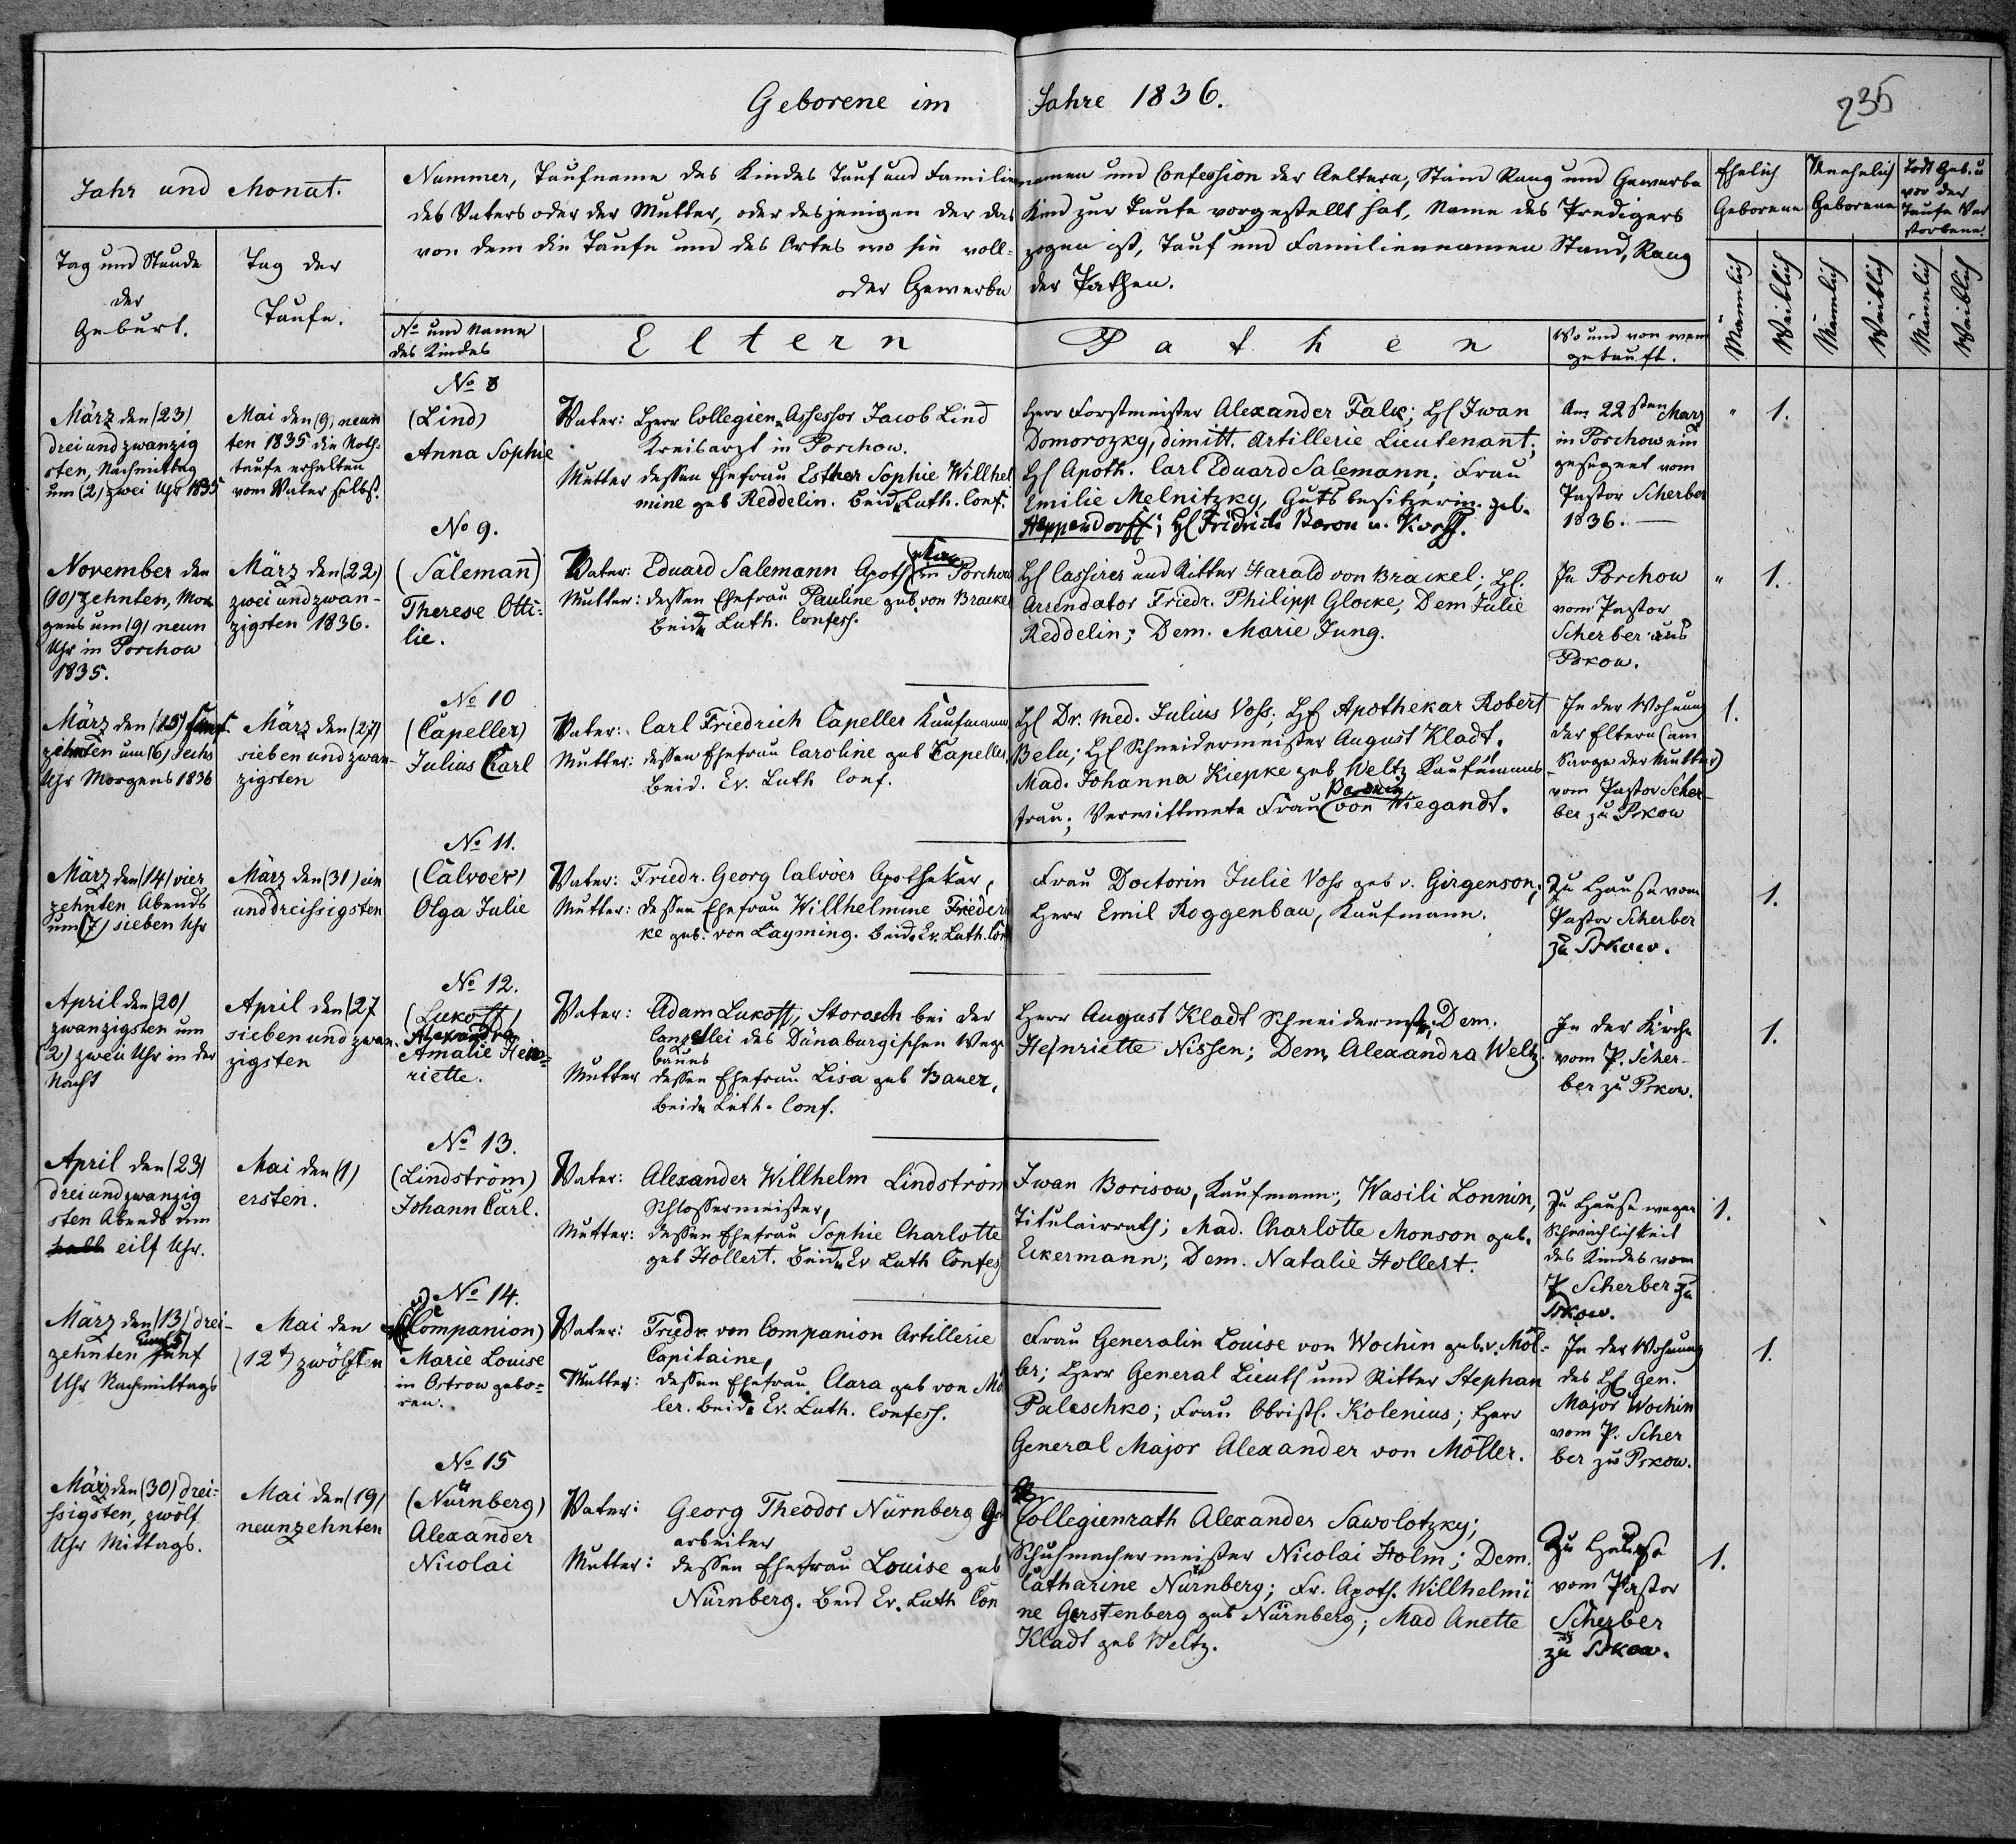 Geborene im Jahre 1836.
235
Jahr und Monat.
Tag und Stunde
der
Geburt.
Tag der
Taufe.
Nummer, Taufname des Kindes Tauf und Familiennamen und Confession der Aeltern, Stand Rang und Gewerbe
des Vaters oder der Mutter, oder desjenigen der das Kind zur Taufe vorgestellt hat, Name des Predigers
von dem die Taufe und des Ortes wo sie voll-zogen ist, Tauf und Familiennamen Stand, Rang
oder Gewerbe der Pathen.
No und Name
des Kindes
Eltern
Pathen
Wo und von wem
getauft.
Ehelich
Geborene
Unehelich
Geborene
Todt Geb. u
vor der
Taufe Ver
storbene.
Männlich
Weiblich
Männlich
Weiblich
Männlich
Weiblich
No 8
März den (23)
drei und zwanzig
sten, Nachmittag
um (2) zwei Uhr 1835
Mai den (9) neun
ten 1835 die Noth-
taufe erhalten
vom Vater selbst.
(Lind)
Anna Sophie
Vater: Herr Collegien-Assessor Jacob Lind
Kreisarzt in Porchow.
Mutter dessen Ehefrau Esther Sophie Willhel
mine geb Reddelin. beide Luth. Conf.
Herr Forstmeister Alexander Falk; H Iwan
Domorozky, dimitt. Artillerie Lieutenant;
H Apoth. Carl Eduard Salemann; Frau
Emilie Melnitzky, Gutsbesitzerin geb.
Heppendorff; H Fridrich Baron v. Korff.
Am 22sten Marz
in Porchow ein
gesegnet vom
Pastor Scherber
1836. —
" 1.
No 9.
November den
(10) zehnten, Mor
gens um (9) neun
Uhr in Porchow
1835.
März den (22)
zwei und zwan-
zigsten 1836.
(Salemañ)
Therese Otti-
lie.
Vater: Eduard Salemann Apoth in Porchow
Mutter: dessen Ehefrau Pauline geb. von Brackel
beide Luth. Confess.
H Cassirer und Ritter Harald von Brackel; H.
Arrendator Friedr. Philipp Glocke, Dem Julie
Reddelin; Dem. Marie Jung.
In Porchow
vom Pastor
Scherber aus
Pskow.
" 1.
No 10
März den (15) fünf
zehnten um (6) sechs
Uhr Morgens 1836
März den (27)
sieben und zwan-
zigsten
(Capeller)
Julius Carl
Vater: Carl Friedrich Capeller Kaufmann
Mutter: dessen Ehefrau Caroline geb Capeller
beid. Ev. Luth Conf.
H Dr. med. Julius Voss. H Apothekar Robert
Belu; H Schneidermeister August Kladt.
Mad. Johanna Kiepke geb Weltz Kaufmanns
frau; Verwittwete Frau von Wiegandt.
In der Wohnung
der Eltern (am
Sarge der Mutter)
vom Pastor Scher-
ber zu Pskow
1.
No 11.
März den (14) vier
zehnten Abends
um (7) sieben Uhr
März den (31) ein
und dreissigsten
(Calvoer)
Olga Julie
Vater: Friedr. Georg Calvoer Apothekar,
Mutter: dessen Ehefrau Willhelmine Frieder
ke geb. von Layming. beide Ev. Luth. Con
Frau Doctorin Julie Voss geb v. Girgenson;
Herr Emil Roggenbau, Kaufmann.
Zu Hause vom
Pastor Scherber
zu Pskow.
1.
No 12.
April den (20)
zwanzigsten um
(2) zwei Uhr in der
Nacht
April den (27
sieben und zwan-
zigsten
(Lukoff)
Alexandra
Amalie Hein-
riette.
Vater: Adam Lukoff, Storosch bei der
Canzellei des Dünaburgischen Wege
baues
Mutter dessen Ehefrau Lisa geb Bauer,
beide Luth. Conf.
Herr August Kladt Schneiderm; Dem.
Heinriette Nissen; Dem, Alexandra Weltz.
In der Kirche
vom P. Scher-
ber zu Pskow.
1.
No 13.
April den (23)
drei und zwanzig
sten Abends um
halb eilf Uhr.
Mai den (1)
ersten.
(Lindström)
Johann Carl.
Vater: Alexander Willhelm Lindström
Schlossermeister,
Mutter: dessen Ehefrau Sophie Charlotte
geb Hollert. beide Ev Luth Confes
Iwan Borisow, Kaufmann; Wasili Lonnin,
Titulairrath; Mad. Charlotte Monson geb.
Eckermann; Dem. Natalie Hollert.
Zu Hause wegen
Schwächlichkeit
des Kindes vom
P Scherber zu
Pskow.
1.
No 14.
März den (13) drei-
zehnten fünf
Uhr Nachmittags
Mai den
(12t) zwölften
(Companion)
Marie Louise
in Ostrow gebo-
ren.
Vater: Friedr von Companion Artillerie
Capitaine,
Mutter: dessen Ehefrau Clara geb von Mö
ler. beide Ev. Luth. Confess.
Frau Generalin Louise von Wochin geb. v. Möl-
ler; Herr General Lieut und Ritter Stephan
Paleschko; Frau Obristl. Kolenius; Herr
General Major Alexander von Möller.
In der Wohnung
des H Gen.
Major Wochin
vom P. Scher
ber zu Pskow.
1.
No 15
März den (30) drei-
ssigsten, zwölf
Uhr Mittags.
Mai den (19)
neunzehnten
(Nürnberg)
Alexander
Nicolai
Vater: Georg Theodor Nürnberg
arbeiter
Mutter: dessen Ehefrau Louise geb
Nürnberg. beid Ev. Luth Con
Collegienrath Alexander Sawolotzky;
Schuhmachermeister Nicolai Holm; Dem.
Catharine Nürnberg; Fr. Apoth. Willhelmi
ne Gerstenberg geb Nürnberg; Mad Anette
Kladt geb Weltz.
Zu Hause
vom Pastor
Scherber
zu Pskow.
1.